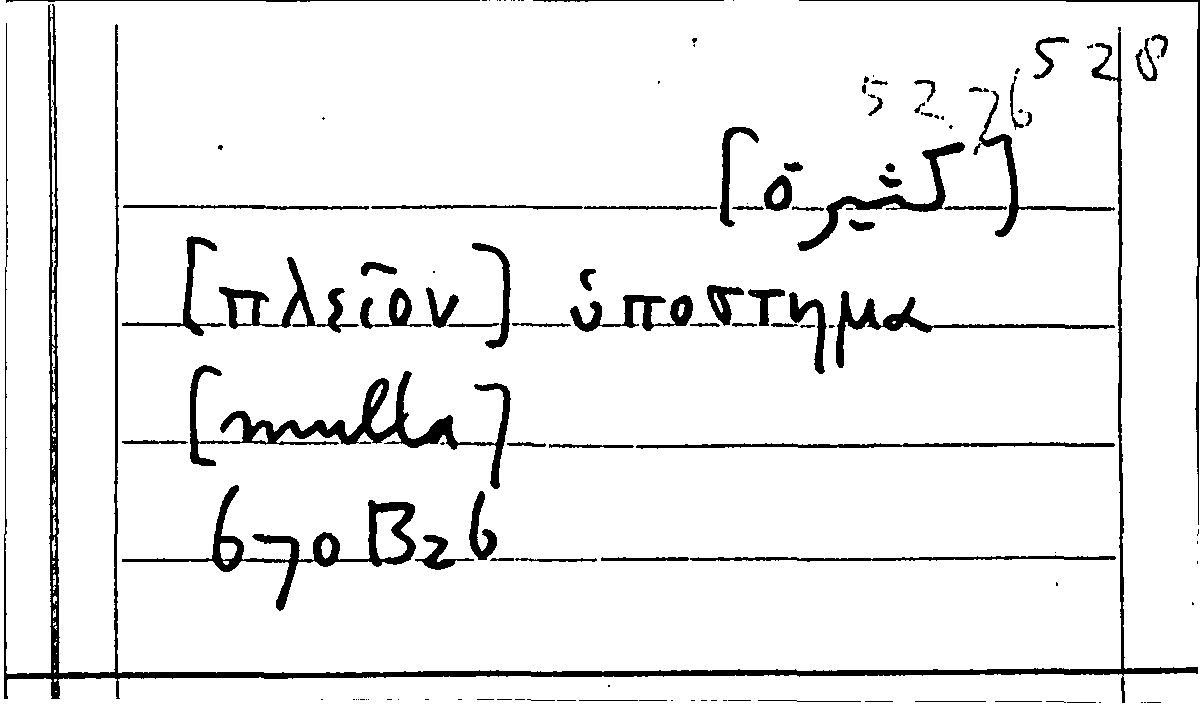 528
[كثيرة]
[πλεῖον] ὑποστημα
[multa]
670B26